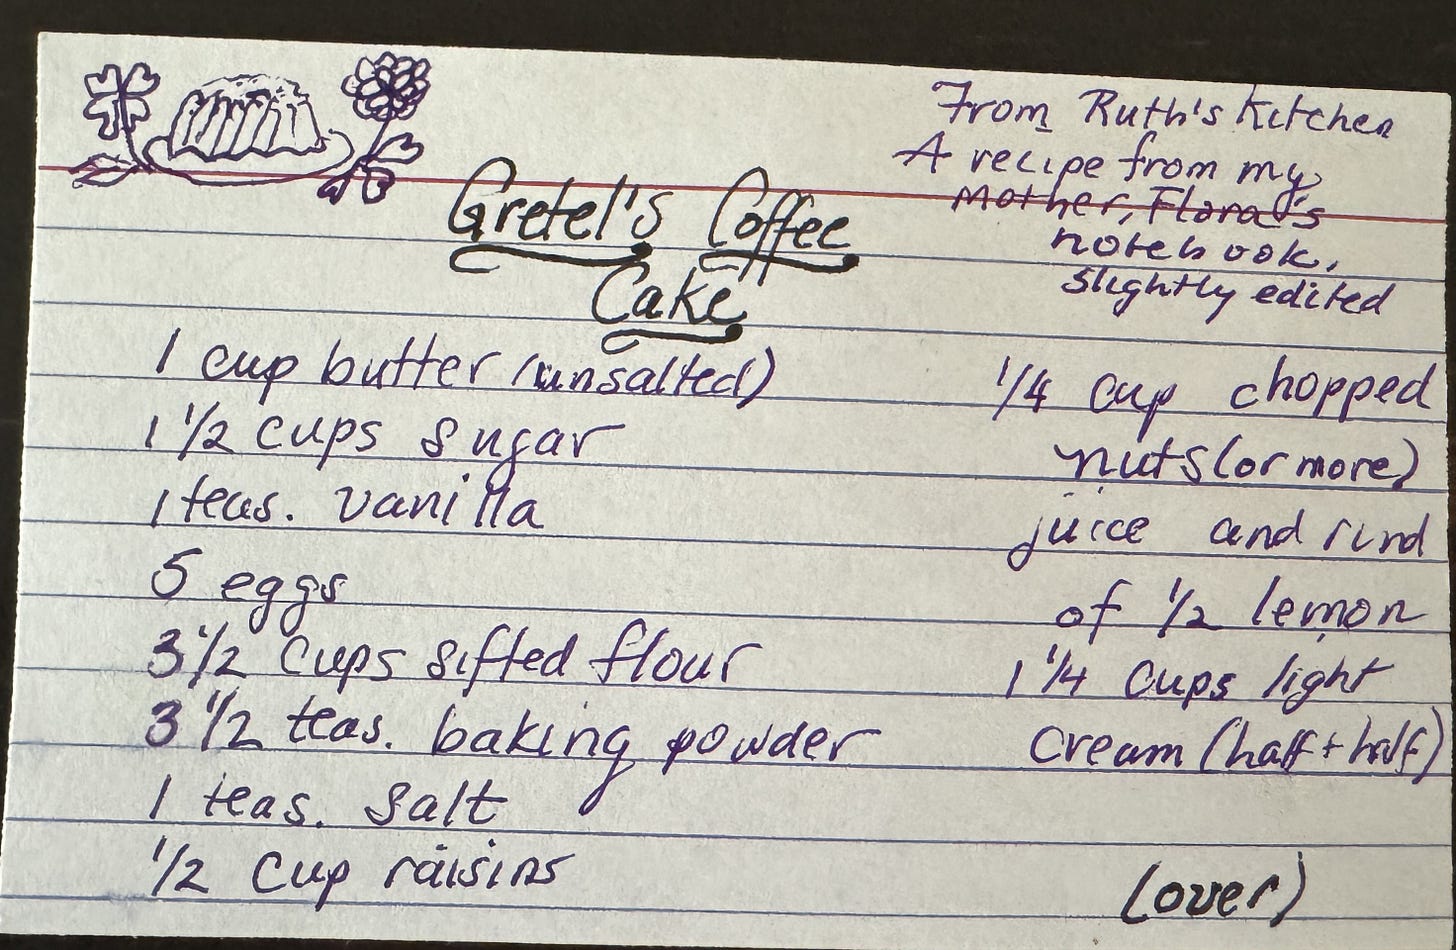 From Ruth's Kitchen
A recipe from my
mother, Flora's
notebook,
slightly edited
Gretel's Coffee
Cake
1 cup butter (unsalted)
1 1/2 cups sugar
1 teas. vanilla
5 eggs
3 1/2 cups sifted flour
3 1/2 teas. baking powder
1 teas. salt
1/2 cup raisins
1/4 cup chopped
nuts (or more)
juice and rind
of 1/2 lemon
1 1/4 cups light
cream (half + half)
(over)